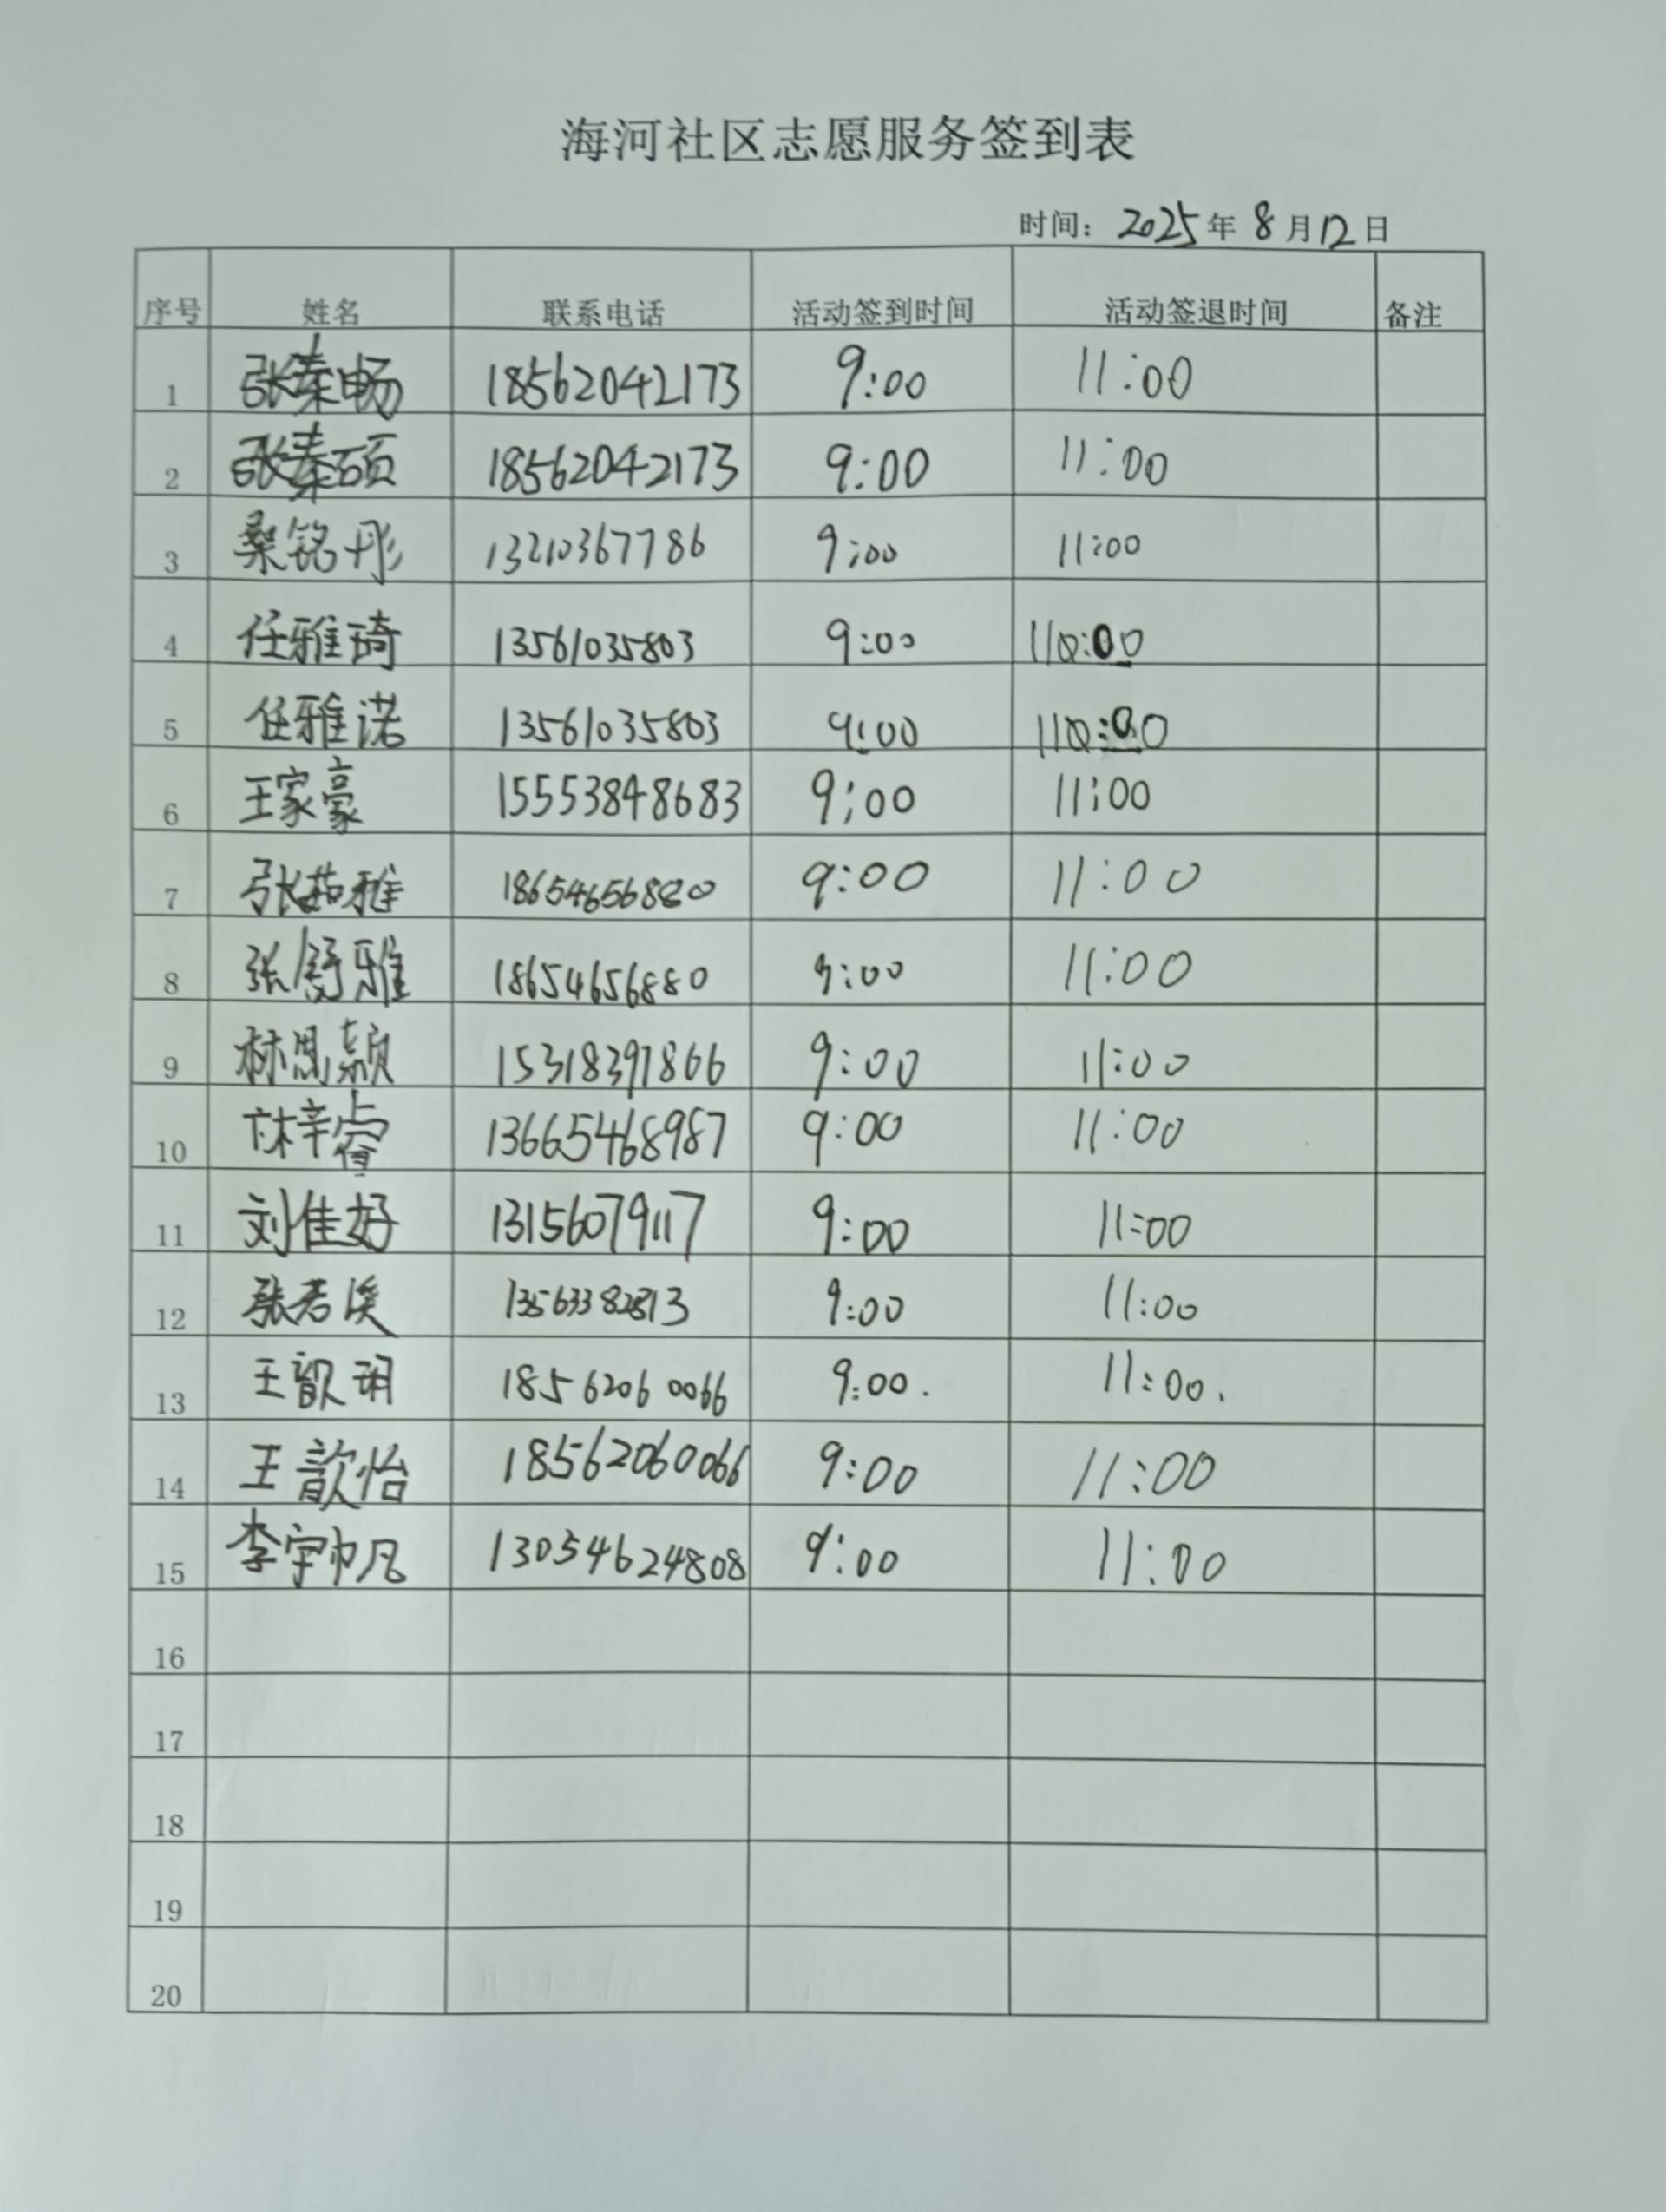 海河社区志愿服务签到表
时间：2025年8月12日
序号 姓名 联系电话 活动签到时间 活动签退时间 备注
1 张秦畅 18562042173 9:00 11:00
2 张秦硕 18562042173 9:00 11:00
3 桑铭彤 13210367786 9:00 11:00
4 任雅琦 13561035803 9:00
5 任雅诺 13561035803 9:00
6 王家豪 15553848683 9:00 11:00
7 张茹雅 18654656880 9:00 11:00
8 张舒雅 18654656880 9:00 11:00
9 林思颖 15318391866 9:00 11:00
10 林辛睿 13665468987 9:00 11:00
11 刘佳好 13156079117 9:00 11:00
12 张若溪 9:00 11:00
13 王歆玥 18562060066 9:00. 11:00.
14 王歆怡 18562060066 9:00 11:00
15 李宇帆 13054624808 9:00 11:00
16
17
18
19
20